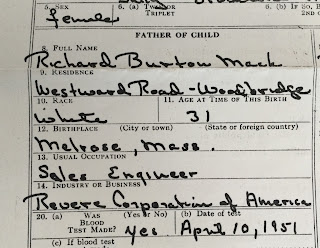 5. SEX
6. (a) TWIN OR TRIPLET
6. (b) IF SO, B
2ND
female
FATHER OF CHILD
8. FULL NAME
Richard Burton Mack
9. RESIDENCE
Westwood Road - Woodbridge
10. RACE 11. AGE AT TIME OF THIS BIRTH
White 31
12. BIRTHPLACE (City or town) (State or foreign country)
Melrose, Mass.
13. USUAL OCCUPATION
Sales Engineer
14. INDUSTRY OR BUSINESS
Revere Corporation of America
20. (a) WAS BLOOD TEST MADE? (Yes or No) (b) Date of test
yes April 10, 1951
(c) If blood test